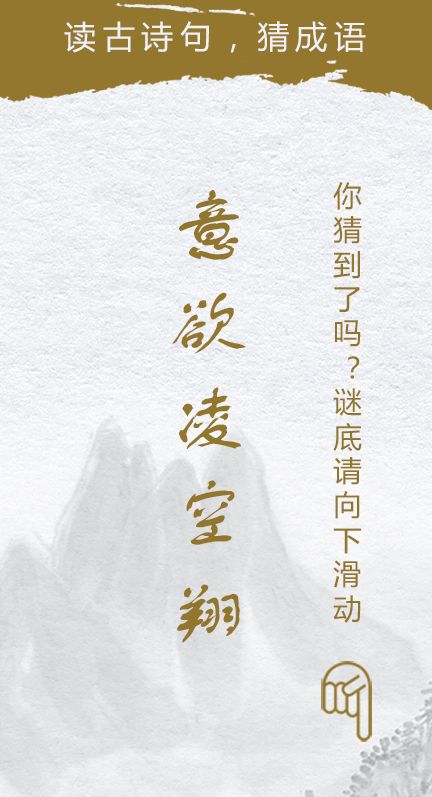 读古诗句，猜成语
你猜到了吗？谜底请向下滑动
意欲凌空翔